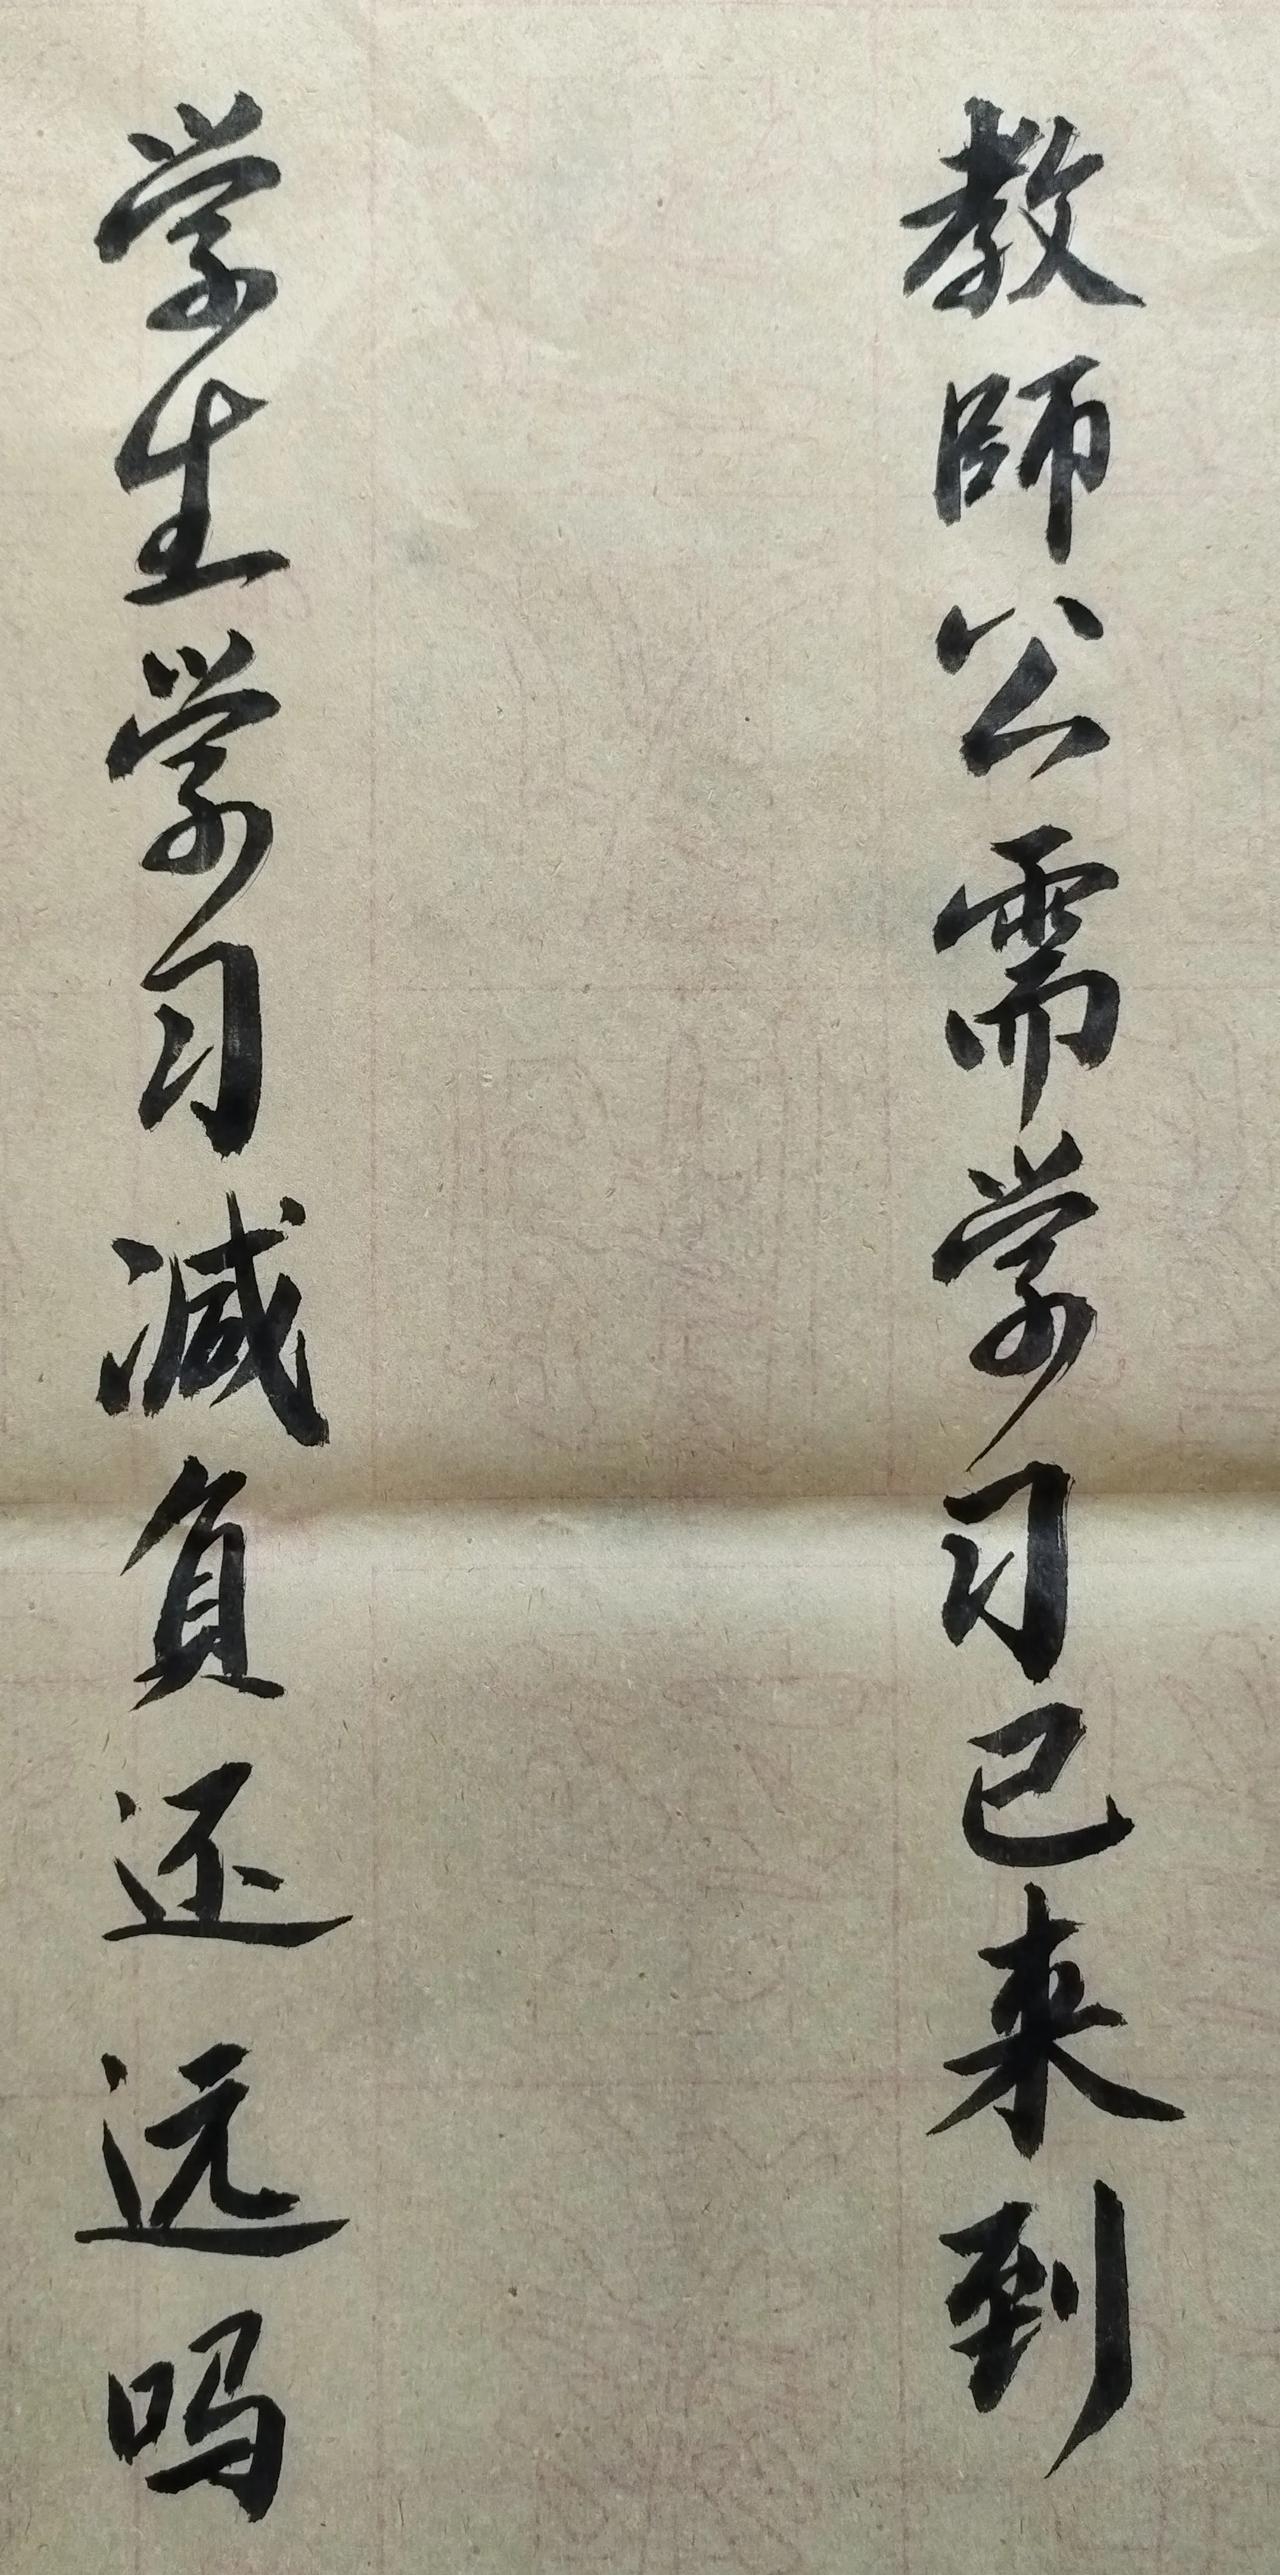 教师公需学习已来到
学生学习减负还远吗